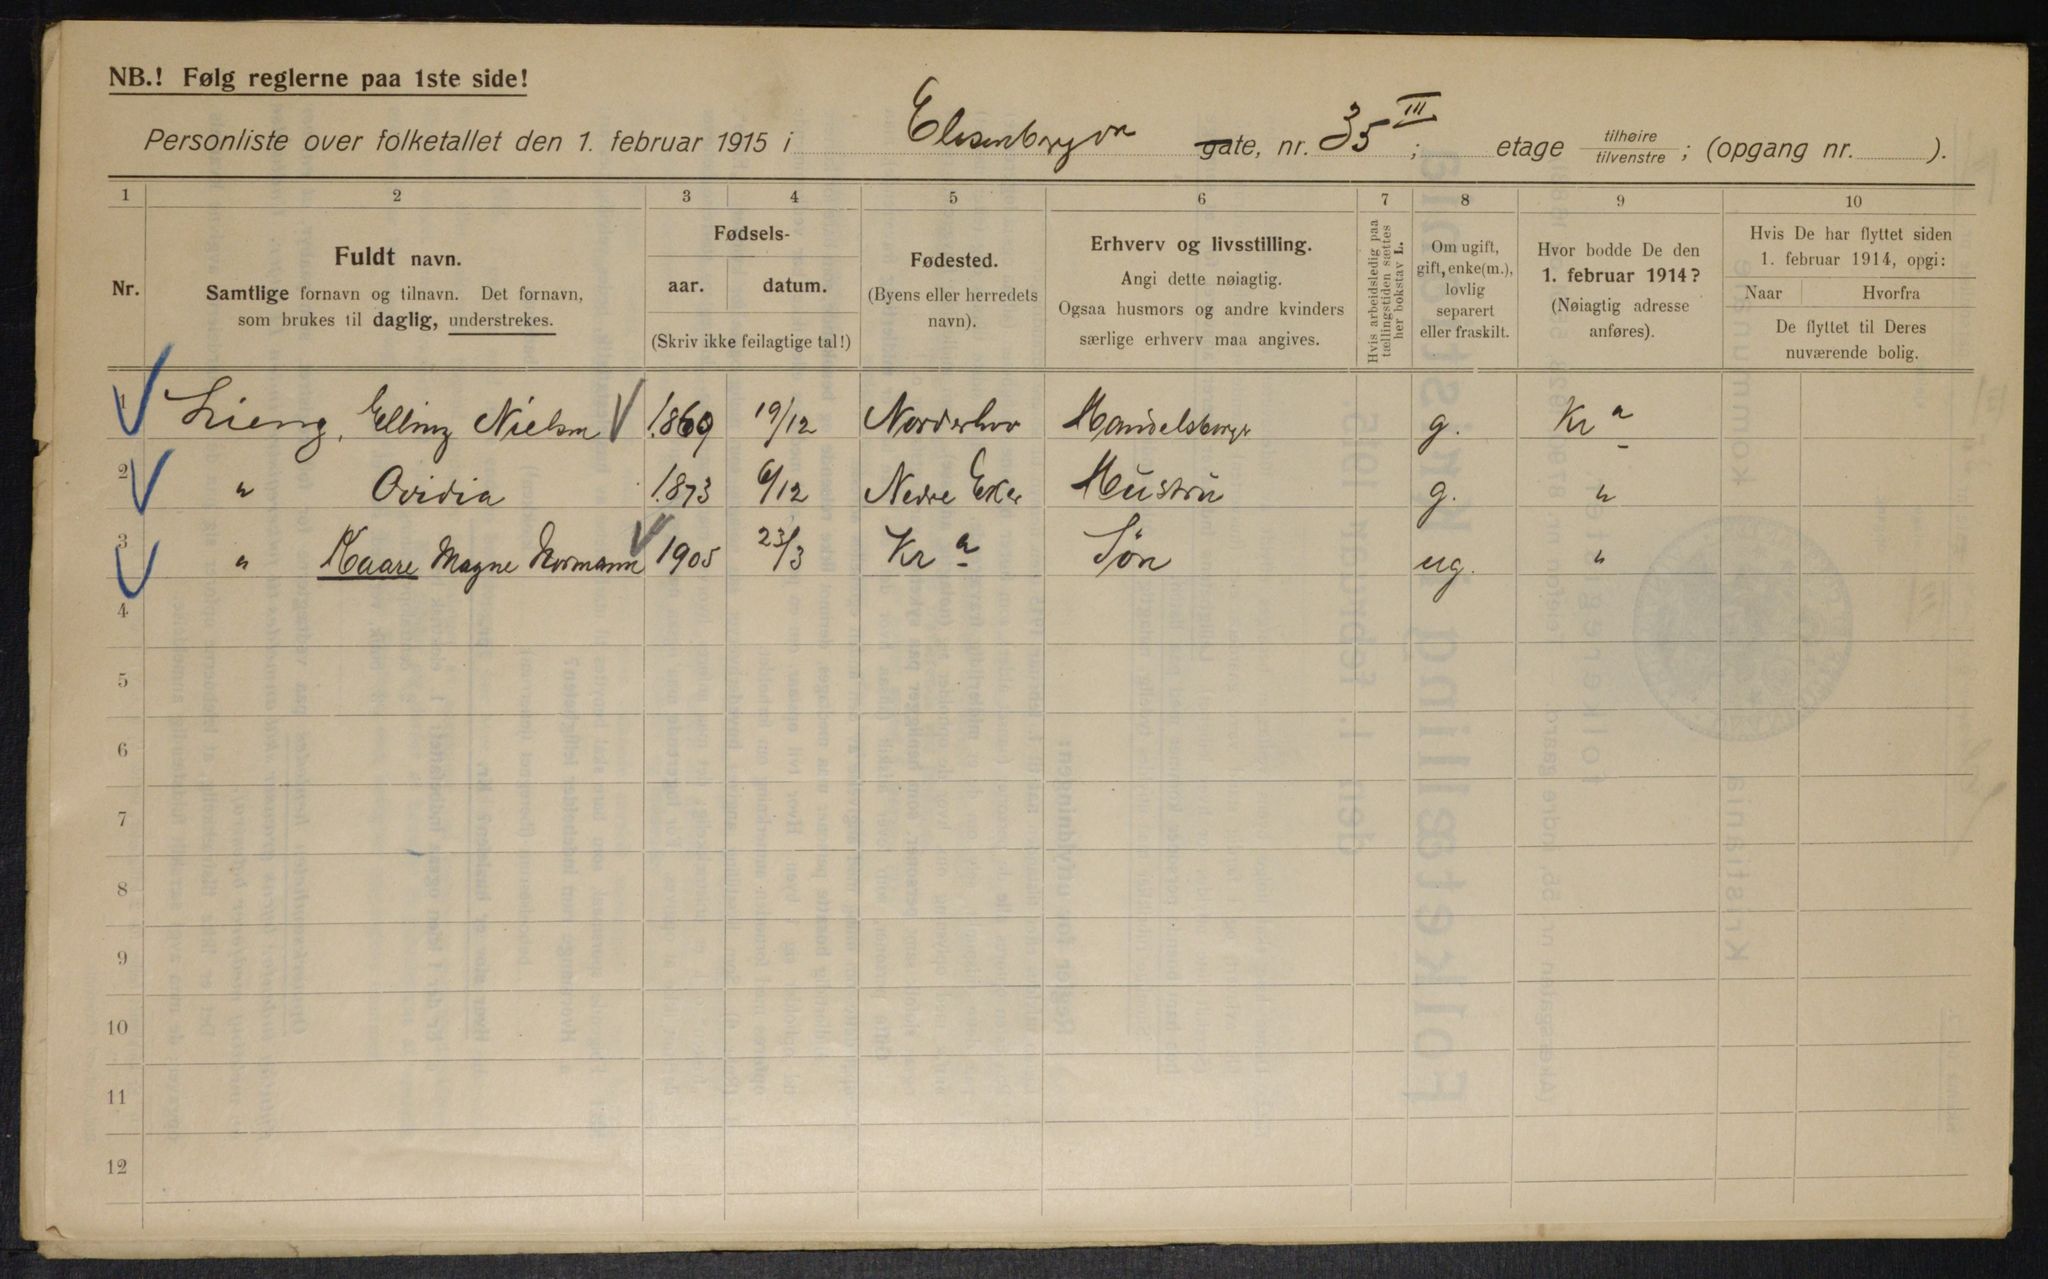 NB.! Følg reglerne paa 1ste side!
Personliste over folketallet den 1. februar 1915 i Elisenbergvn gate, nr. 35 III; etage tilhøire tilvenstre; (opgang nr. ).
1 2 3 4 5 6 7 8 9 10
Nr.
Fuldt navn.
Samtlige fornavn og tilnavn. Det fornavn,
som brukes til daglig, understrekes.
Fødsels-
aar. datum.
(Skriv ikke feilagtige tal!)
Fødested.
(Byens eller herredets
navn).
Erhverv og livsstilling.
Angi dette nøiagtig.
Ogsaa husmors og andre kvinders
særlige erhverv maa angives.
Hvis arbeidsledig paa
tællingstiden sættes
her bokstav L.
Om ugift,
gift, enke(m.),
lovlig
separert
eller fraskilt.
Hvor bodde De den
1. februar 1914?
(Nøiagtig adresse
anføres).
Hvis De har flyttet siden
1. februar 1914, opgi:
Naar Hvorfra
De flyttet til Deres
nuværende bolig.
1 Lieng, Elling Nielsen 1869 19/12 Norderhov Handelsborger g. Kra
2 " Ovidia 1873 6/12 Nedre Eker Hustru g. "
3 " Kaare Magne Normann 1905 23/3 Kra Søn ug. "
4
5
6
7
8
9
10
11
12